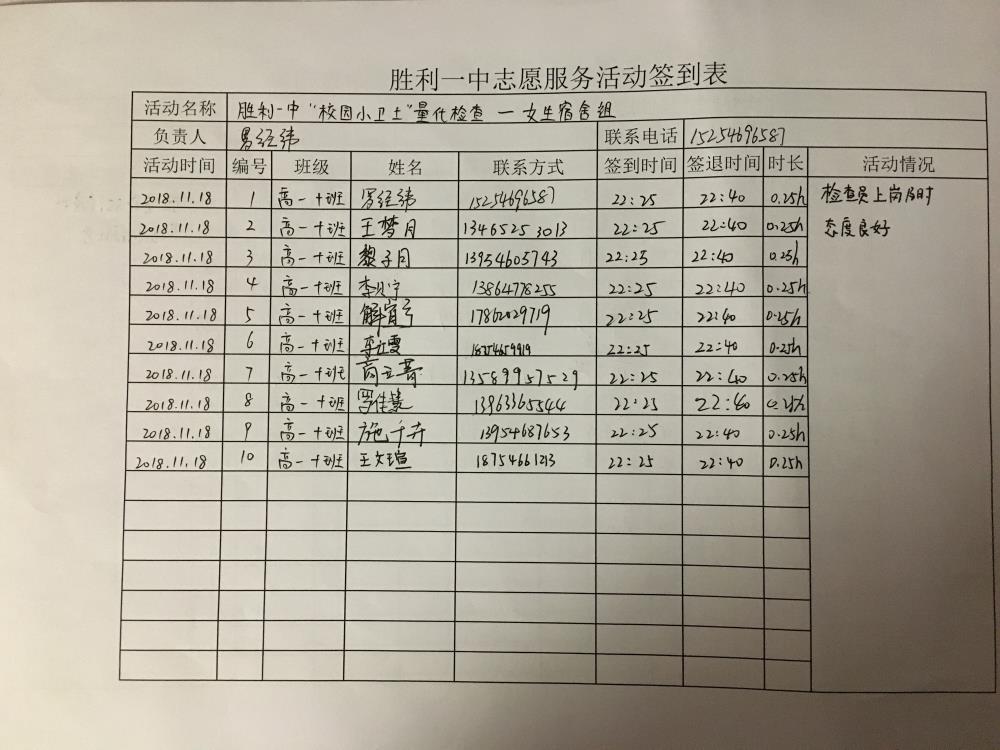 胜利一中志愿服务活动签到表
活动名称 胜利一中"校园小卫士"量化检查 — 女生宿舍组
负责人 罗经纬 联系电话 15254696587
活动时间 编号 班级 姓名 联系方式 签到时间 签退时间 时长 活动情况
2018.11.18 1 高一十班 罗经纬 15254696587 22:25 22:40 0.25h 检查员上岗及时
2018.11.18 2 高一十班 王梦月 13465253013 22:25 22:40 0.25h 态度良好
2018.11.18 3 高一十班 黎子月 13954605743 22:25 22:40 0.25h
2018.11.18 4 高一十班 13864778255 22:25 22:40 0.25h
2018.11.18 5 高一十班 17862029719 22:25 22:40 0.25h
2018.11.18 6 高一十班 18254659919 22:25 22:40 0.25h
2018.11.18 7 高一十班 13589957529 22:25 22:40 0.25h
2018.11.18 8 高一十班 罗佳慧 13963365544 22:25 22:40 0.25h
2018.11.18 9 高一十班 施千卉 13954687653 22:25 22:40 0.25h
2018.11.18 10 高一十班 王文瑄 18754661213 22:25 22:40 0.25h